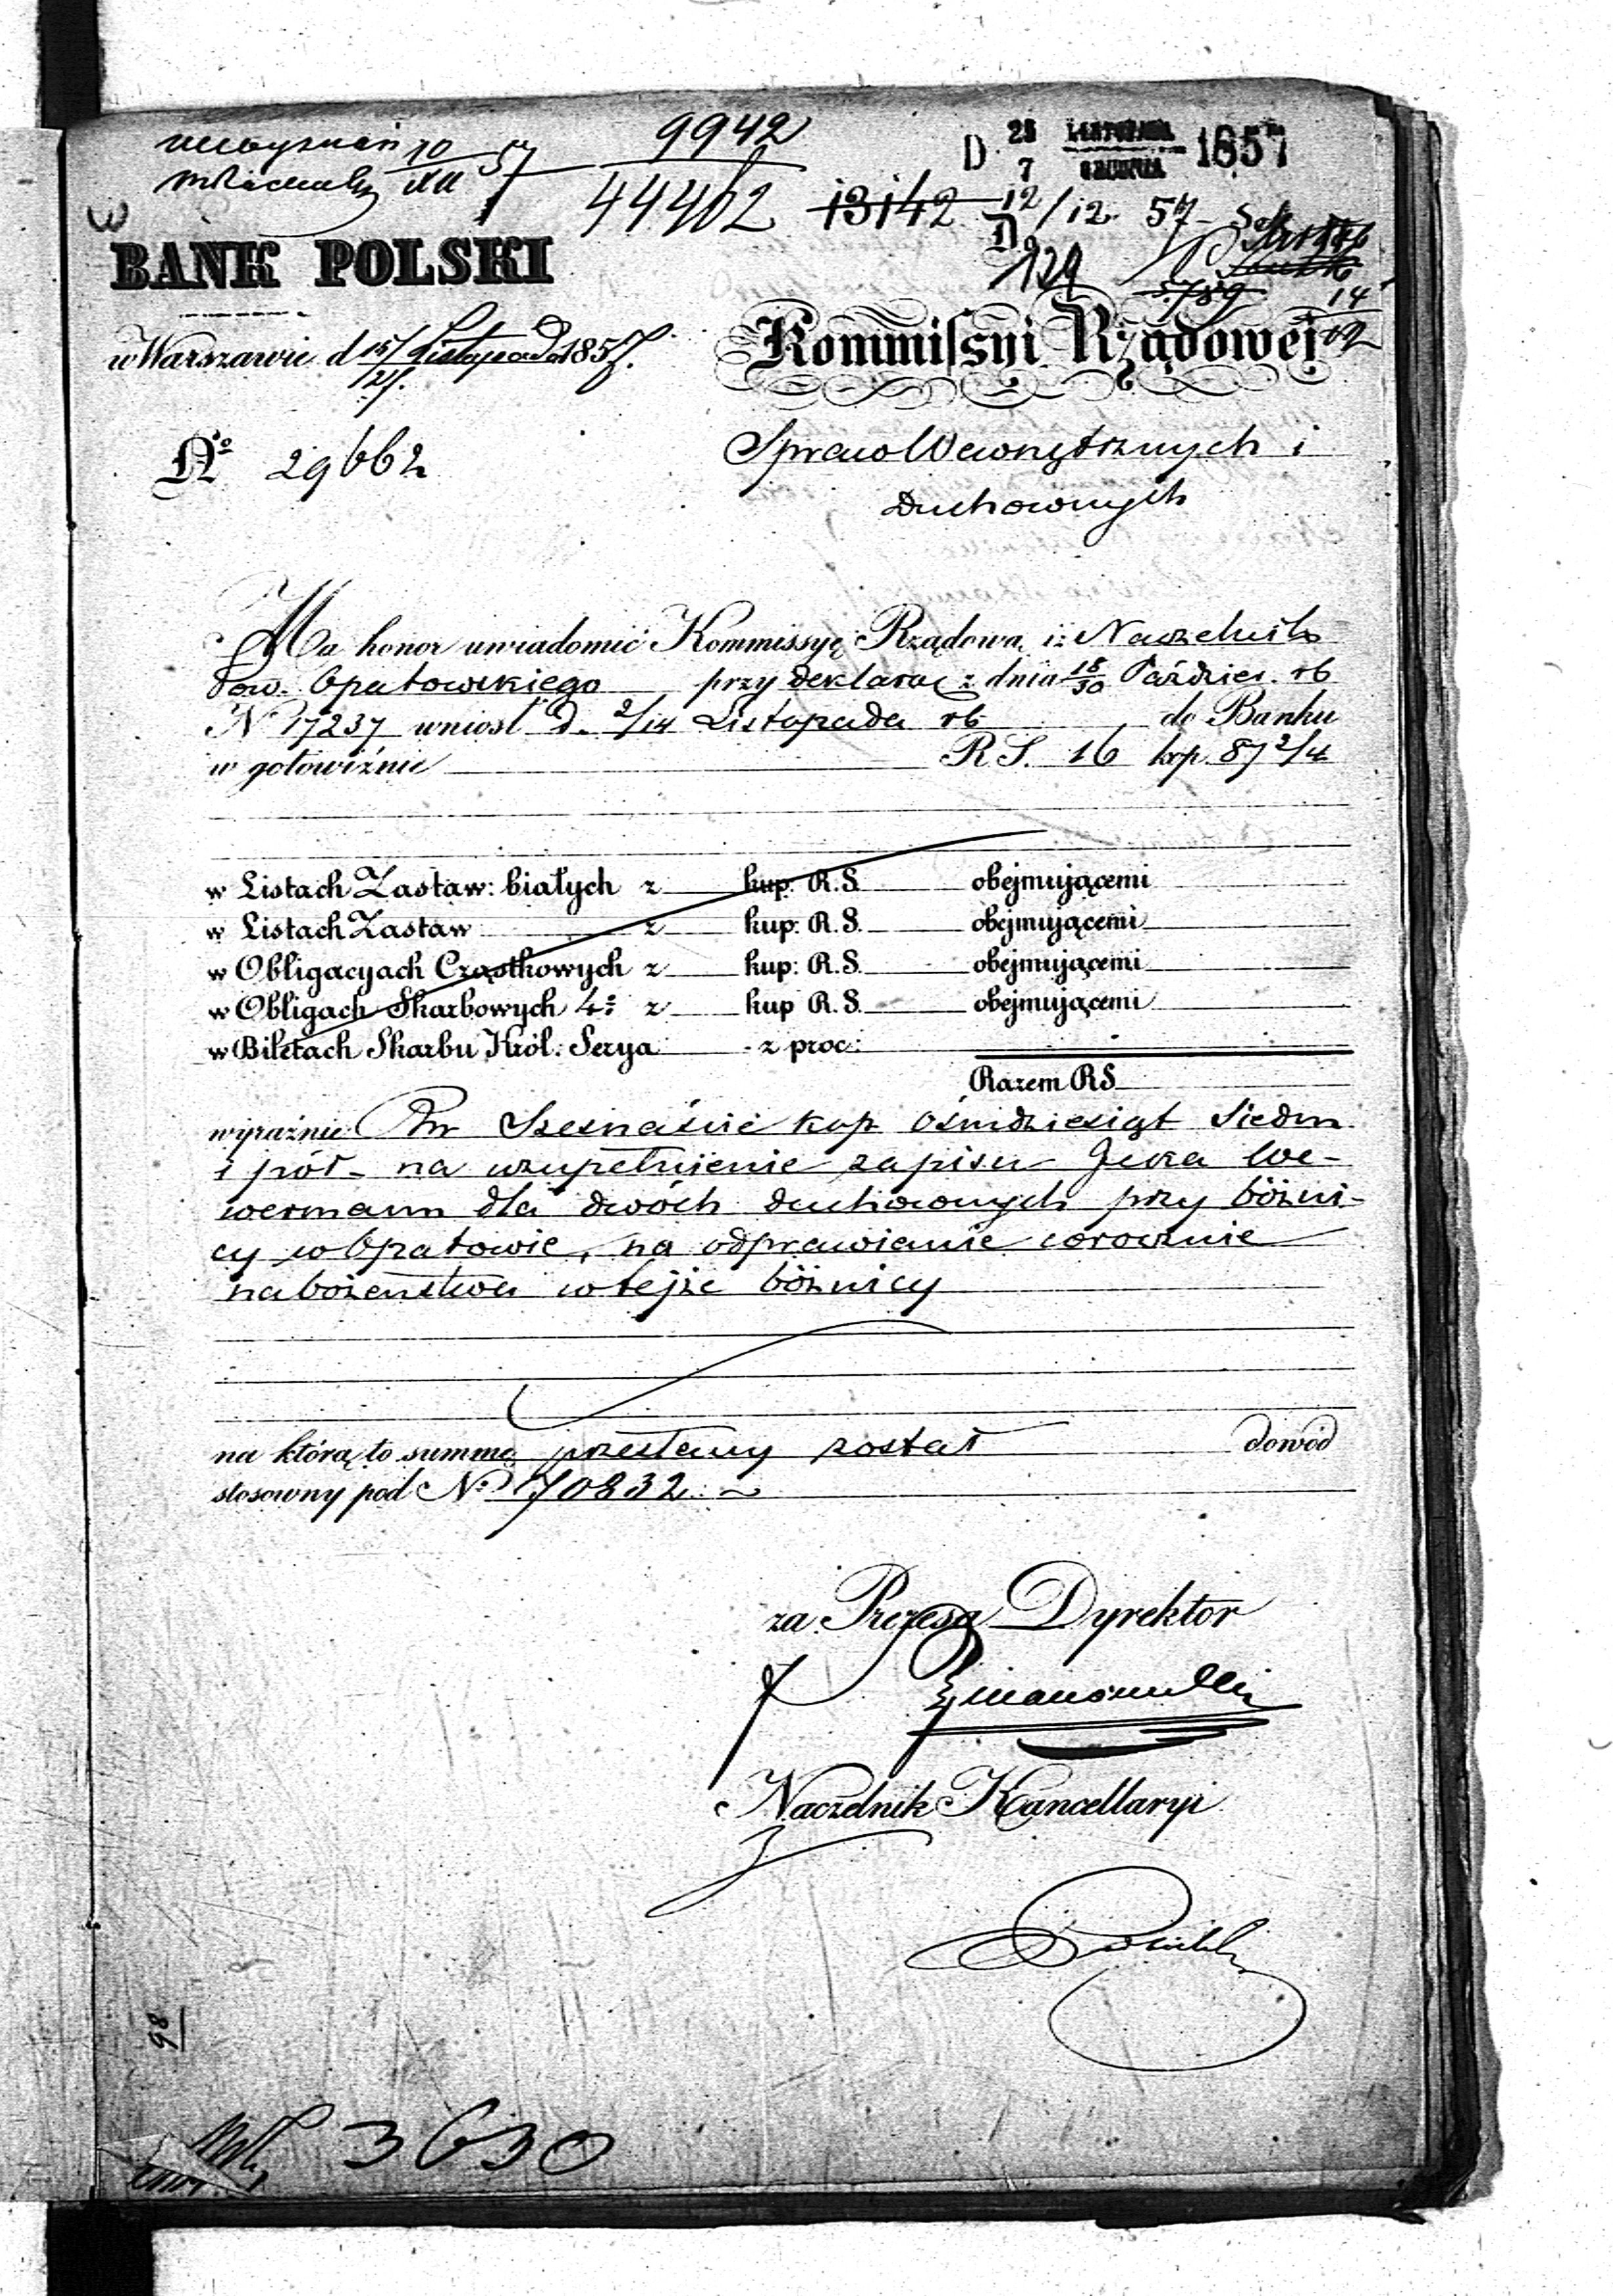 9942
D. 25 Listopada 1857
7 Grudnia
44462 13142 12/12 57
BANK POLSKI
D
129
5789 14
12
w Warszawie d 15/27 Listopada 1857.
Kommissyi Rządowej
No 29662
Spraw Wewnętrznych i
Duchownych
Ma honor uwiadomić Kommissyę Rządową iż Naczelnik
Pow. Opatowskiego przy deklarac z dnia 18/30 Paździer. rb
No 17237 wniosł d. 2/14 Listopada rb do Banku
w gotowiźnie RS. 16 kop. 87 2/4
w Listach Zastaw: białych z kup: R.S. obejmującemi
w Listach Zastaw z kup: R.S. obejmującemi
w Obligacyach Cząstkowych z kup: R.S. obejmującemi
w Obligach Skarbowych 4% z kup R.S. obejmującemi
w Biletach Skarbu Król: Serya z proc:
Razem RS
wyraźnie Rsr Szesnaście kop Ośmdziesiąt Siedm
i pół na uzupełnienie zapisu Jcka We-
wermann dla dwóch duchownych przy bóżni-
cy w Opatowie, na odprawianie corocznie
nabożeństwa w tejże bóżnicy
na którą to summę przesłany został dowód
stosowny pod No 70832
za Prezesa Dyrektor
Naczelnik Kancellaryi
98
3630